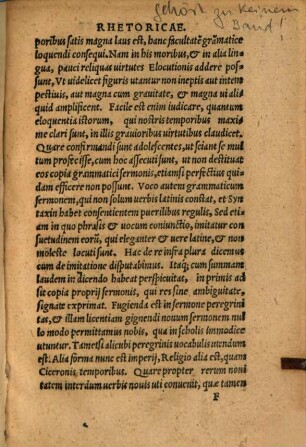 gehört zu keinem
Band!
RHETORICAE.
poribus satis magna laus est, hanc facultatē grāmatice
loquendi consequi. Nam in his moribus, & in alia lin
gua, pauci reliquas virtutes Elocutionis addere pos=
sunt, Vt uidelicet figuris utantur non ineptis aut intem
pestiuis, aut magna cum grauitate, & magna ui aliı
quid amplificent. Facile est enim iudicare, quantum
eloquentia istorum, qui nostris temporibus maxi
me clari sunt, in illis grauioribus virtutibus claudicet.
Quare confirmandi sunt adolescentes, ut sciant se mul
tum profecisse, cum hoc assecuti sunt, ut non destituat
eos copia grammatici sermonis, etiamsi perfectius qui
dam efficere non possunt. Voco autem grammaticum
sermonem, qui non solum verbis latinis constat, et Syn
taxin habet consentientem puerilibus regulis, Sed etiā
am in quo phrasis & uocum coniunctio, imitatur con
suetudinem eorū, qui eleganter & uere latine, & non
moleste locuti sunt. Hac de re infra plura dicemus
cum de imitatione disputabimus. Itaq; cum summam
laudem in dicendo habeat perspicuitas, in primis ad
sit copia proprij sermonis, qui res sine ambiguitate,
signate exprimat. Fugienda est in sermone peregrini
tas, & illam licentiam gignendi nouum sermonem nul
lo modo permittamus nobis, qua in scholis immodice
utuntur. Tametsi alicubi peregrinis uocabulis utendum
est. Alia forma nunc est imperij, Religio alia est, quam
Ciceronis, temporibus. Quare propter rerum noui
tatem interdum verbis nouis uti conuenit, quæ tamen
F